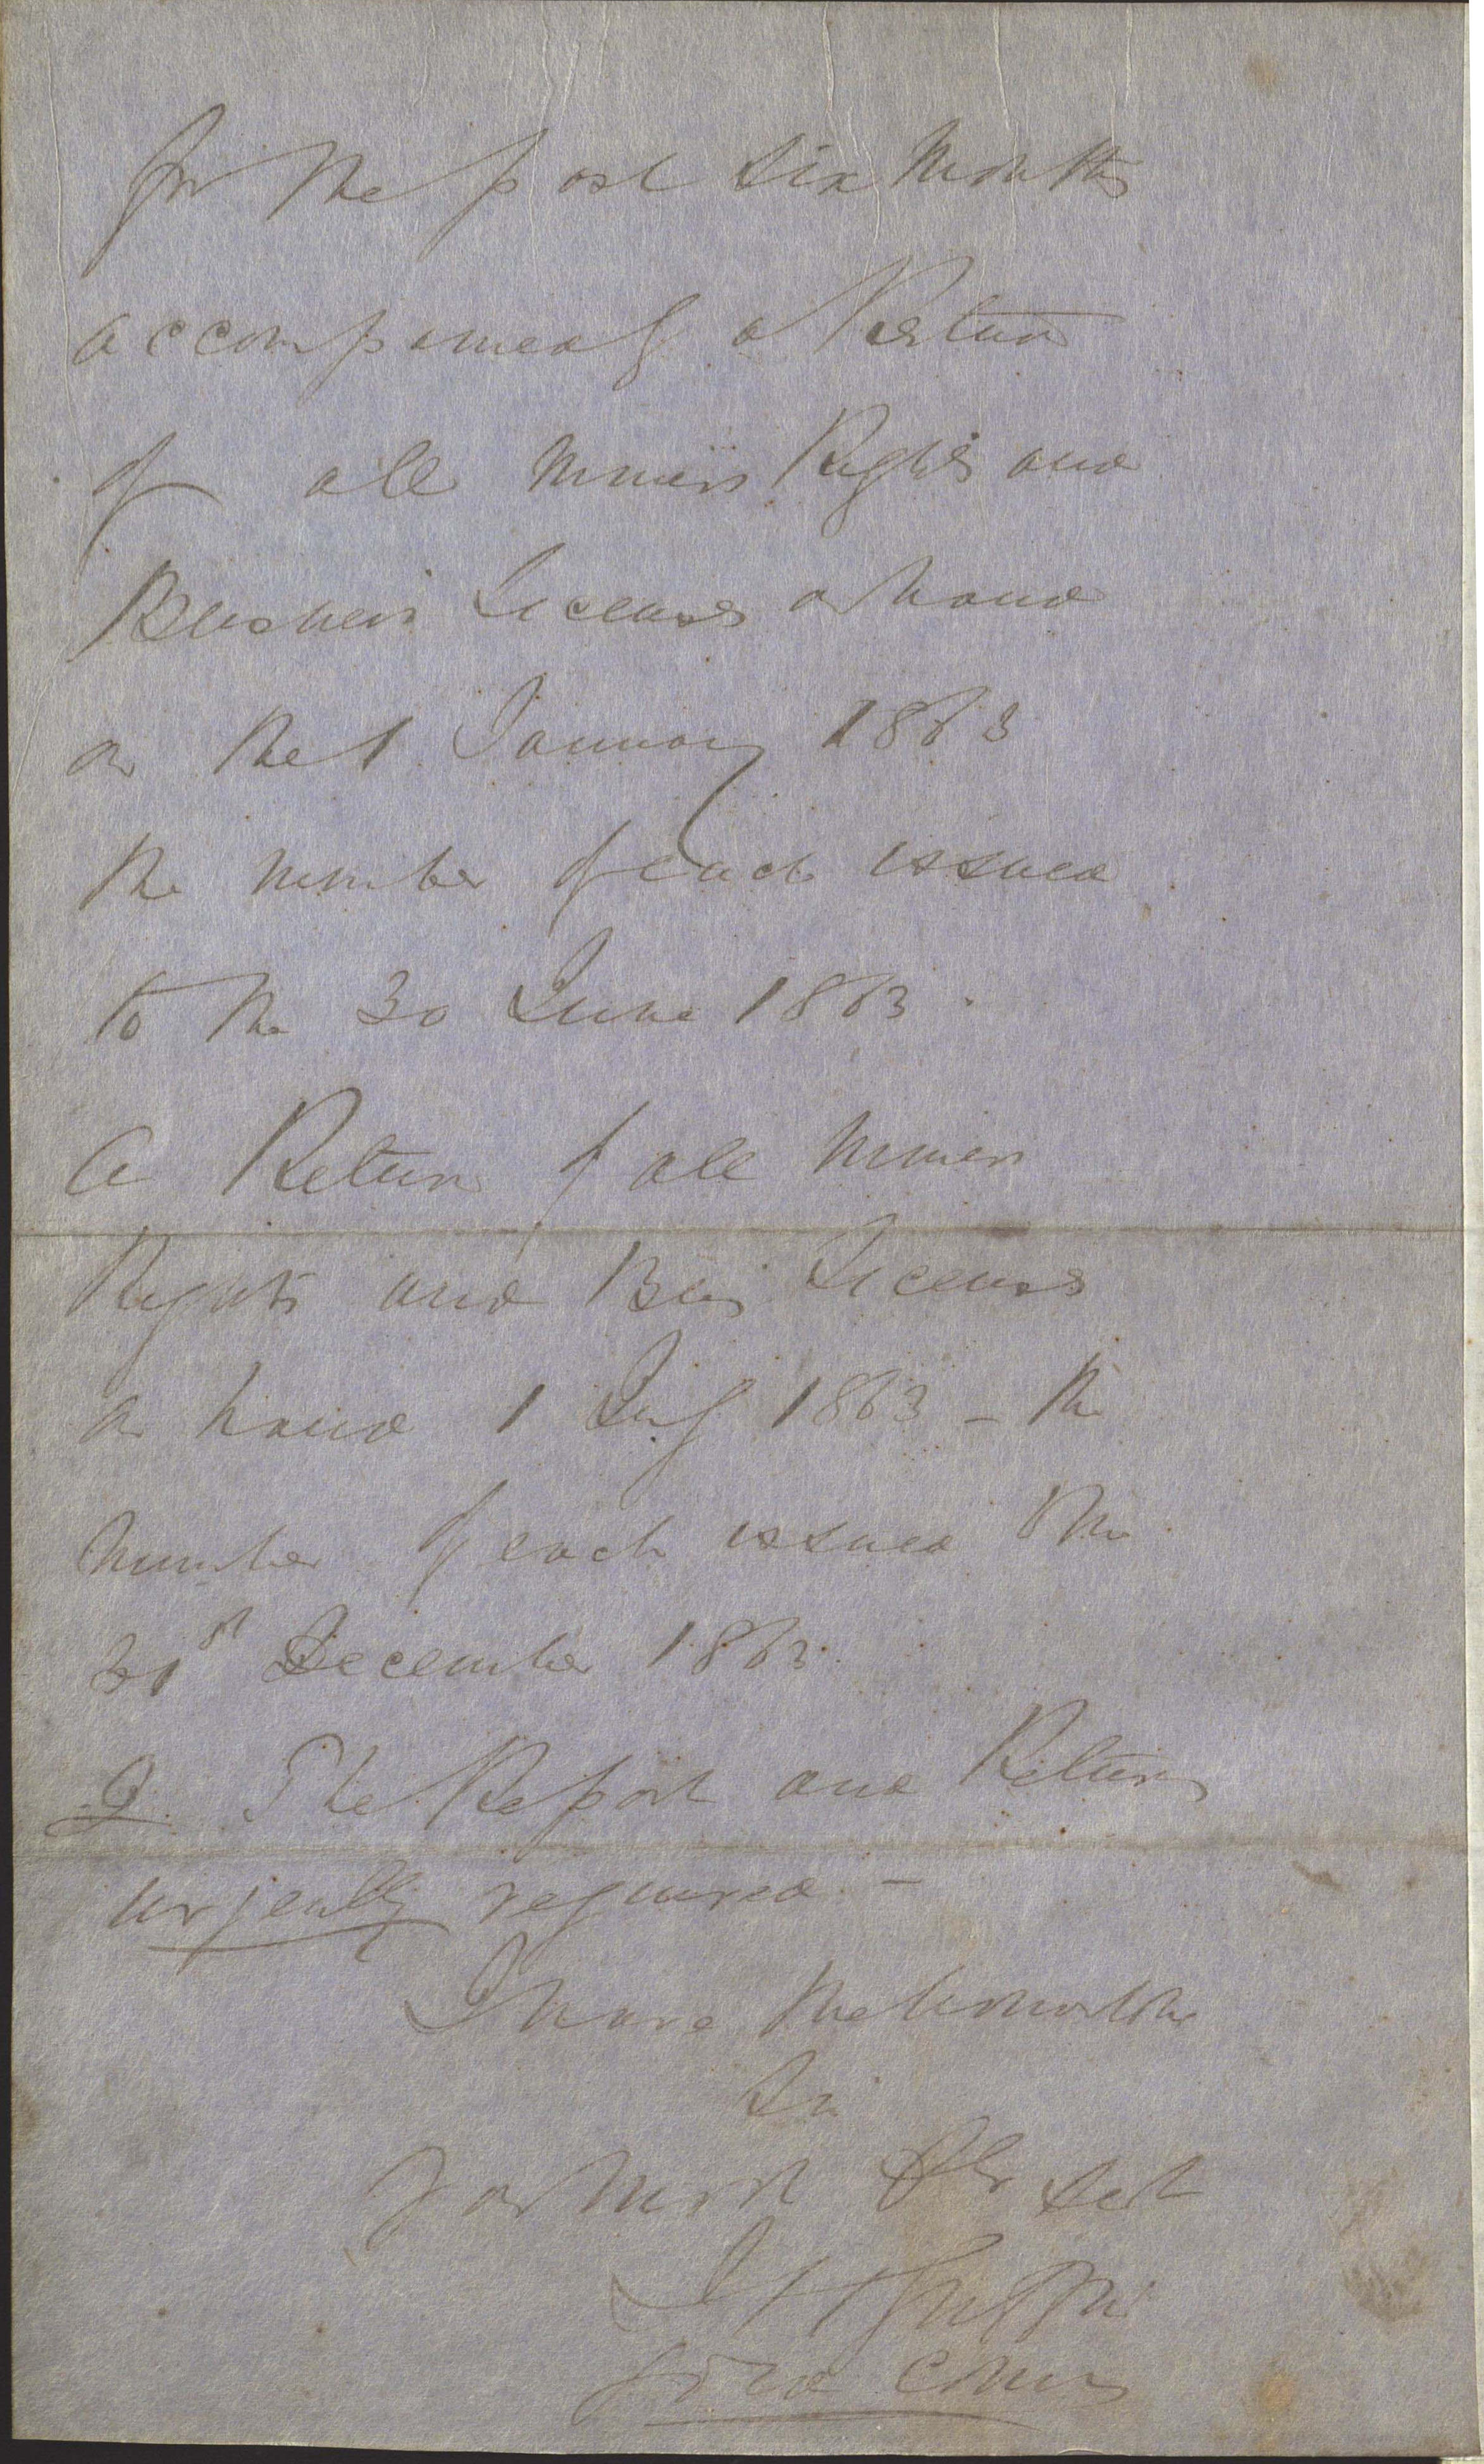 for the past six Months
accompanied by a Return
of all Miners Rights and
Business Licenses on hand
on the 1 January 1863
the number of each issued
to the 30 June 1863.
A Return of all Miners
Rights and Bus Licenses
on hand 1 July 1863 - the
number of each issued to the
31st December 1863.
2 The Report and Returns
urgently required. -
I have the honor to be
Sir
Your Most Obt Sert
Gold Comr